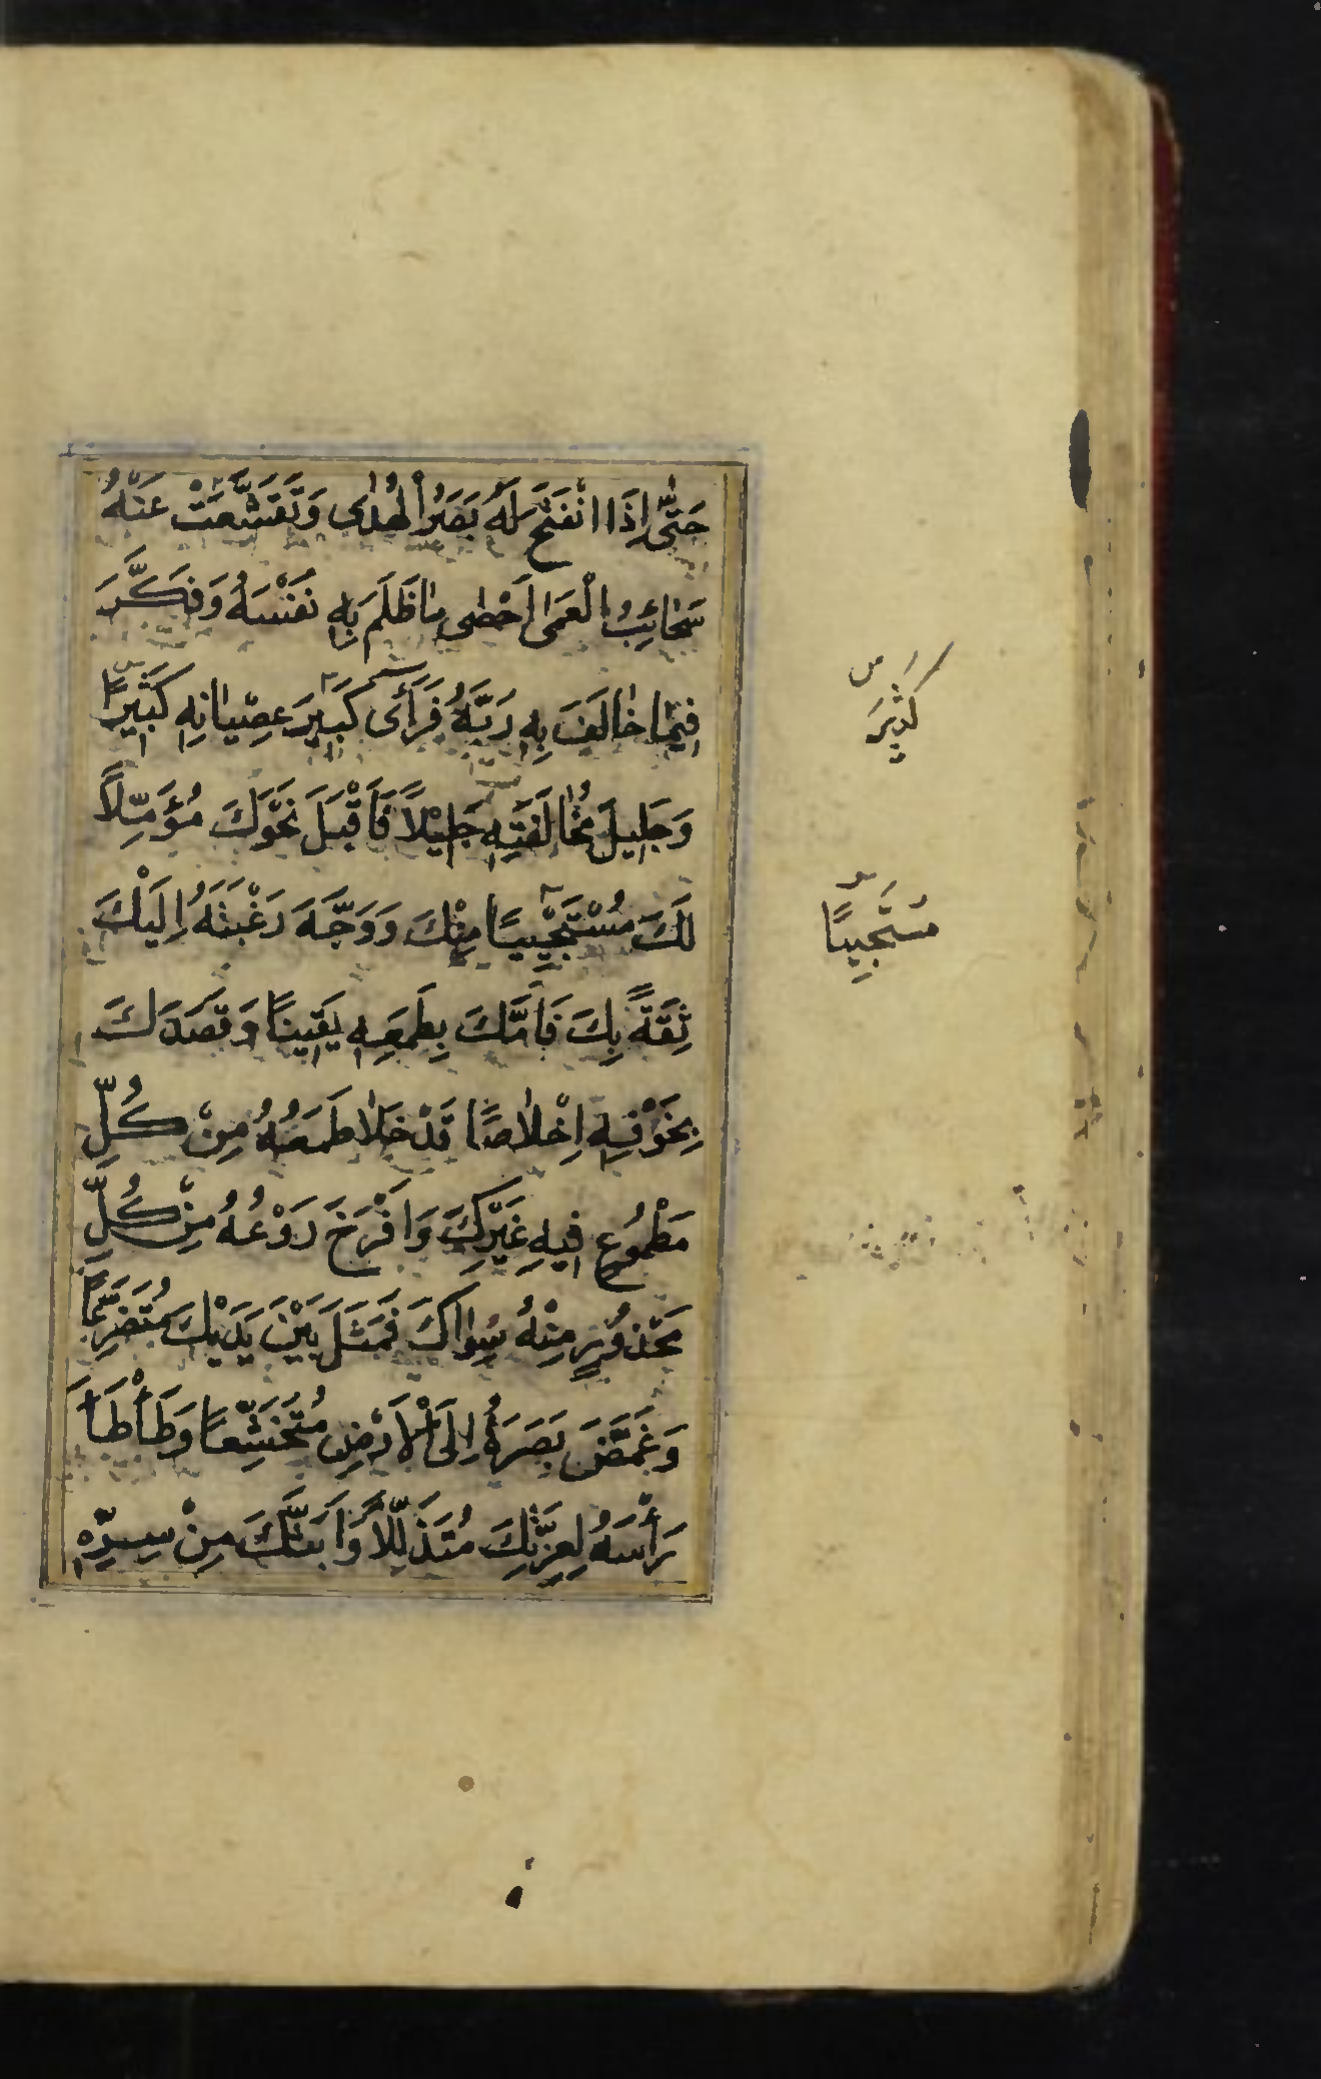 حَتّٰى اِذَا انْفَتَحَ لَهُ بَصَرُ الْهُدٰى وَتَقَشَّعَتْ عَنْهُ
سَحٰائِبُ الْعَمٰى اَحْصٰى مٰا ظَلَمَ بِهِ نَفْسَهُ وَفَكَّرَ
فِيمٰا خٰالَفَ بِهِ رَبَّهُ فَرَأَى كَبِيرَ عِصْيٰانِهِ كَبِيرًا
وَجَلِيلَ مُخٰالَفَتِهِ جَلِيْلاً فَاَقْبَلَ نَحْوَكَ مُؤَمِّلاً
لَكَ مُسْتَحْيِيًا مِنْكَ وَوَجَّهَ رَغْبَتَهُ اِلَيْكَ
ثِقَةً بِكَ فَاَمَّكَ بِطَمَعِهِ يَقِينًا وَقَصَدَكَ
بِخَوْفِهِ اِخْلاٰصًا قَدْ خَلاٰ طَمَعُهُ مِنْ كُلِّ
مَطْمُوعٍ فِيهِ غَيْرِكَ وَاَفْرَخَ رَوْعُهُ مِنْ كُلِّ
مَحْذُورٍ مِنْهُ سِوٰاكَ فَمَثَلَ بَيْنَ يَدَيْكَ مُتَضَرِّعًا
وَغَمَّضَ بَصَرَهُ اِلَى الْاَرْضِ مُتَخَشِّعًا وَطَأْطَأَ
رَأْسَهُ لِعِزَّتِكَ مُتَذَلِّلًا وَاَبَثَّكَ مِنْ سِرِّهِ
كَثِيرَ